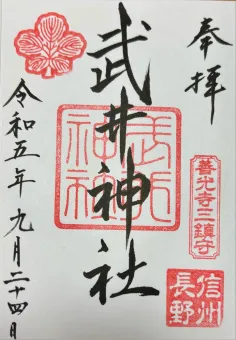 奉拝
善光寺三鎮守
信州
長野
武井神社
令和五年九月二十四日